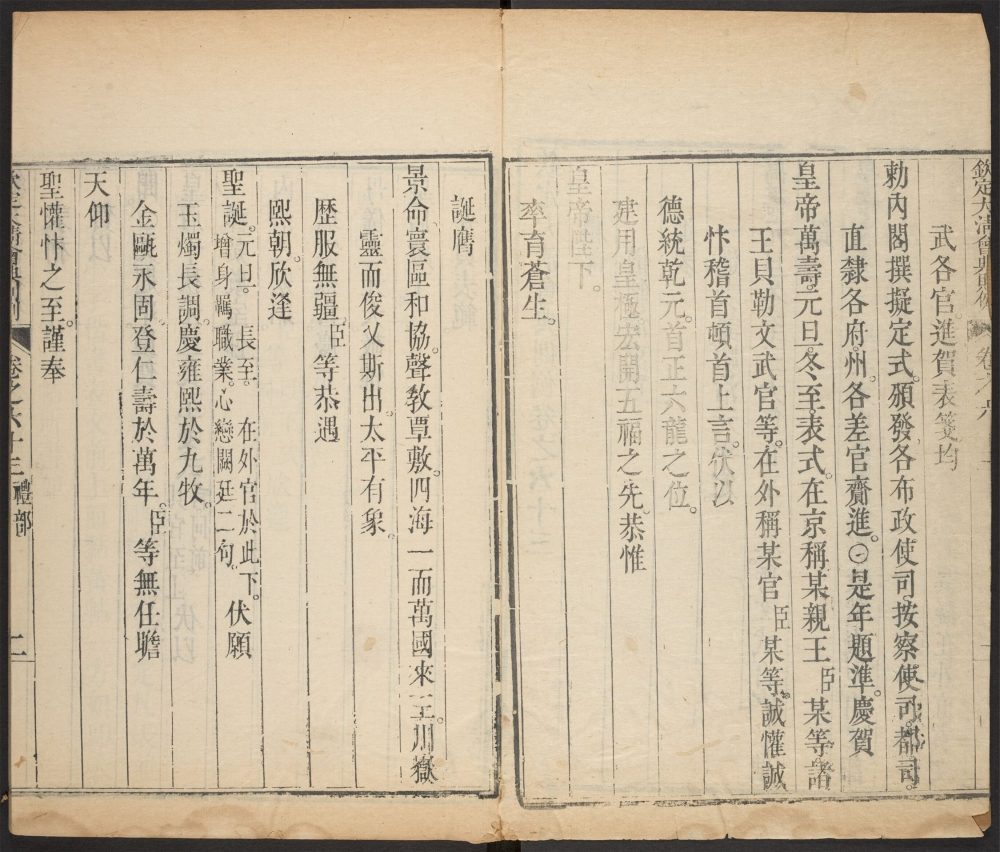 欽定大清會典則例 卷六
武各官。進賀表箋均
勅內閣撰擬定式。頒發各布政使司。按察使司。都司。
直隸各府州。各差官齎進。○是年題準。慶賀
皇帝萬壽。元旦。冬至。表式。在京稱某親王臣某等諸
王貝勒文武官等。在外稱某官臣某等。誠懽誠
忭稽首頓首上言。伏以
德統乾元。首正六龍之位。
建用皇極。宏開五福之先。恭惟
皇帝陛下。
率育蒼生。
誕膺
景命。寰區和協。聲敎覃敷。四海一而萬國來王。川嶽
靈而俊乂斯出。太平有象。
歴服無疆。臣等恭遇
熙朝。欣逢
聖誕。元旦。長至。在外官於此下。增身羈職業。心戀闕廷二句。伏願
玉燭長調。慶雍熙於九牧。
金甌永固。登仁壽於萬年。臣等無任瞻
天仰
聖懽忭之至。謹奉
欽定大清會典則例 卷之六十三禮部 二